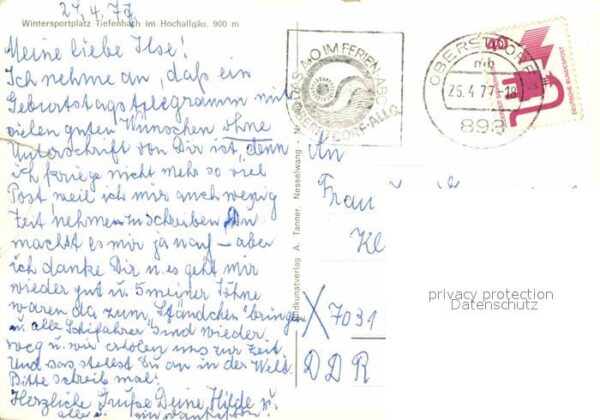 24.4.77
Wintersportplatz Tiefenbach im Hochallgäu. 900 m
Meine liebe Ilse!
Ich nehme an, daß ein
Geburtstagstelegramm mit
vielen guten Wünschen ohne
Unterschrift von Dir ist, denn
ich kriege nicht mehr so viel
Post weil ich mir auch wenig
Zeit nehmen zu schreiben. Du
machst es mir ja nach – aber
ich danke Dir u. es geht mir
wieder gut u. 5 meiner Söhne
waren da zum "Ständchen" bringen
u. alle Schifahrer sind wieder
weg u. wir erholen uns zur Zeit
Und was stellst Du an in der Welt.
Bitte schreib mal!
Herzliche Grüße Deine Hilde u.
alle
A. Tanner, Nesselwang
DAS A+O IM FERIEN-ABC
OBERSTDORF-ALLG
OBERSTDORF 1
mb
25.4.77-18
898
40
An
Frau
X 7031
DDR
privacy protection
Datenschutz